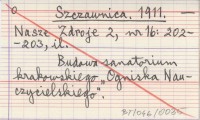 Szczawnica. 1911. —
Nasze Zdroje 2, nr 16: 202-
-203, il.
Budowa sanatorium
krakowskiego „Ogniska Nau-
czycielskiego".